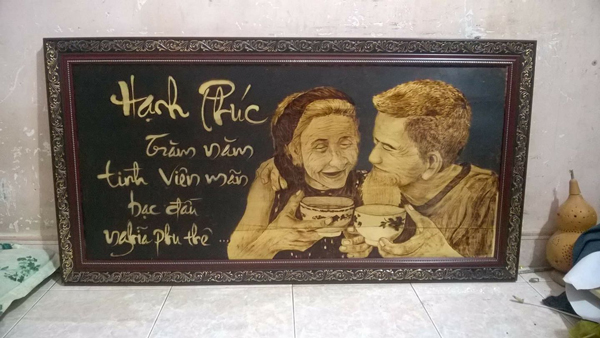 Hạnh Phúc
Trăm năm
tình viên mãn
bạc đầu
nghĩa phu thê ...